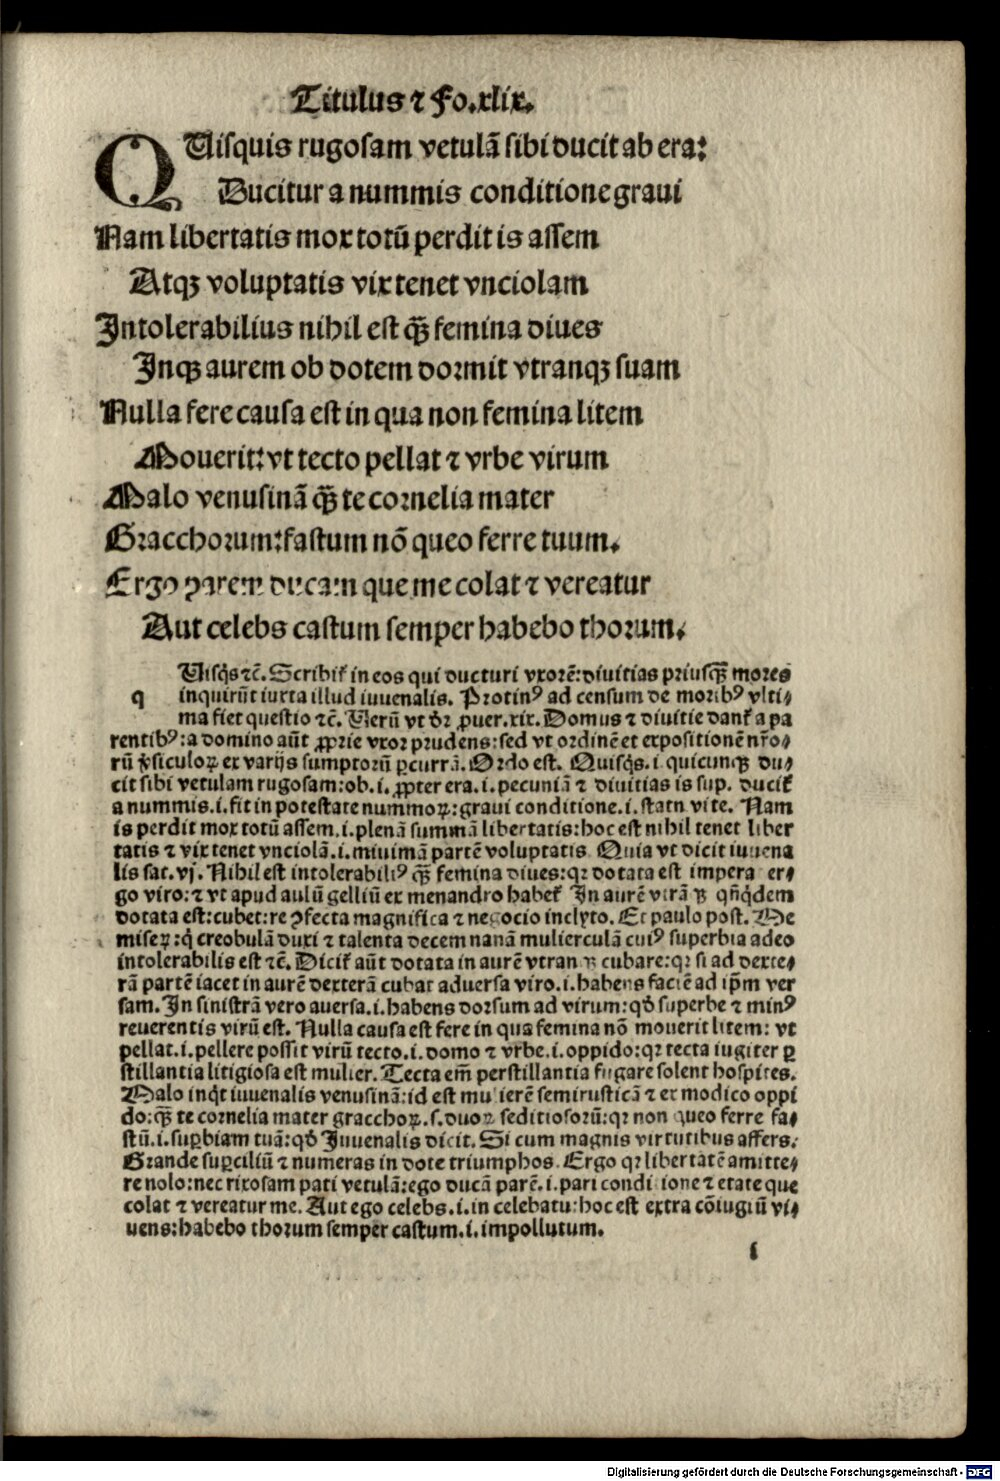 Titulus ⁊ Fo.xlix.
QUisquis rugosam vetulā sibi ducit ab era:
Ducitur a nummis conditione graui
Nam libertatis mox totū perdit is assem
Atqꝫ voluptatis vix tenet vnciolam
Intolerabilius nihil est q̄ꝫ femina diues
Inqꝫ aurem ob dotem dormit vtranqꝫ suam
Nulla fere causa est in qua non femina litem
Mouerit: vt tecto pellat ⁊ vrbe virum
Malo venusinā q̄ꝫ te cornelia mater
Gracchorum: fastum nō queo ferre tuum.
Ergo parem ducam que me colat ⁊ vereatur
Aut celebs castum semper habebo thorum.
Uisq̇s ⁊c̄. Scribit᷑ in eos qui ducturi vxorē: diuitias priusq̄ꝫ mores
q inquirūt iuxta illud iuuenalis. Protinꝰ ad censum de moribꝰ vlti⸗
ma fiet questio ⁊c̄. Uerū vt dr̄ ꝓuer.xix. Domus ⁊ diuitie dant᷑ a pa
rentibꝰ: a domino aūt ꝓprie vxor prudens: sed vt ordinē et expositionē nr̄o⸗
rū v̓siculoꝝ ex varijs sumptorū ꝑcurrā. Ordo est. Quisq̇s.i.quicunqꝫ du⸗
cit sibi vetulam rugosam: ob.i.ꝓpter era.i.pecuniā ⁊ diuitias is sup. ducit᷑
a nummis.i.fit in potestate nummoꝝ: graui conditione.i.statu vite. Nam
is perdit mox totū assem.i.plenā summā libertatis: hoc est nihil tenet liber
tatis ⁊ vix tenet vnciolā.i.minimā partē voluptatis. Quia vt dicit iuuena
lis sat.vj. Nihil est intolerabiliꝰ q̄ꝫ femina diues: qꝛ dotata est impera er⸗
go viro: ⁊ vt apud aulū gelliū ex menandro habet᷑ In aurē vtrā qn̄q̇dem
dotata est: cubet: re ꝯfecta magnifica ⁊ negocio inclyto. Et paulo post. Me
miseꝝ: q̇ creobulā duxi ⁊ talenta decem nanā mulierculā cuiꝰ superbia adeo
intolerabilis est ⁊c̄. Dicit᷑ aūt dotata in aurē vtranqꝫ cubare: qꝛ si ad dexte⸗
rā partē iacet in aurē dexterā cubat aduersa viro.i.habens faciē ad ip̄m ver
sam. In sinistrā vero auersa.i.habens dorsum ad virum: qđ superbe ⁊ minꝰ
reuerentis virū est. Nulla causa est fere in qua femina nō mouerit litem: vt
pellat.i.pellere possit virū tecto.i.domo ⁊ vrbe.i.oppido: qꝛ tecta iugiter ꝑ
stillantia litigiosa est mulier. Tecta em̄ perstillantia fugare solent hospites.
Malo inq̇t iuuenalis venusinā: id est mulierē semirusticā ⁊ ex modico oppi
do: q̄ꝫ te cornelia mater gracchoꝝ.s.duoꝝ seditiosorū: qꝛ non queo ferre fa⸗
stū.i.suꝑbiam tuā: qđ Iuuenalis dicit. Si cum magnis virtutibus affers.
Grande suꝑciliū ⁊ numeras in dote triumphos. Ergo qꝛ libertatē amitte⸗
re nolo: nec rixosam pati vetulā: ego ducā parē.i.pari conditione ⁊ etate que
colat ⁊ vereatur me. Aut ego celebs.i.in celebatu: hoc est extra cōiugiū vi⸗
uens: habebo thorum semper castum.i.impollutum.
s
Digitalisierung gefördert durch die Deutsche Forschungsgemeinschaft - DFG